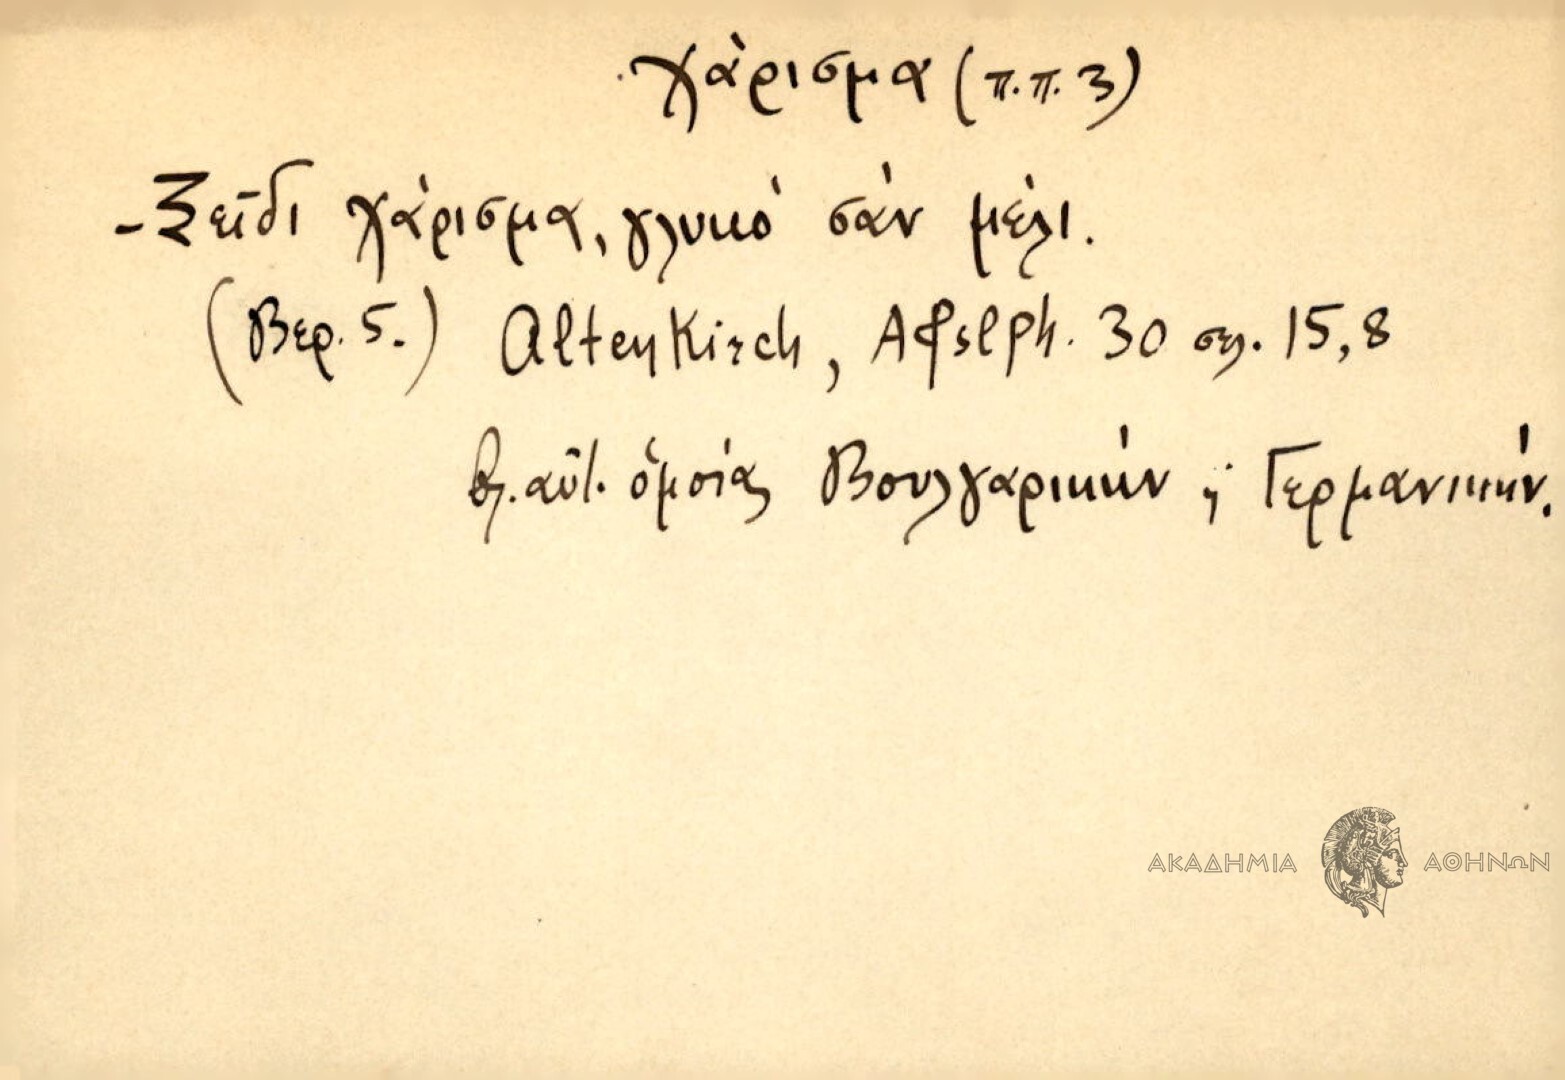 χάρισμα (π.π. 3)
- Ξεῖδι χάρισμα, γλυκό σάν μέλι.
(Βερ. 5.) Altenkirch, Afslph. 30 σελ. 15,8
βλ. αὐτ. ὁμοίας Βουλγαρικήν ἤ Γερμανικήν.
ΑΚΑΔΗΜΙΑ ΑΘΗΝΩΝ